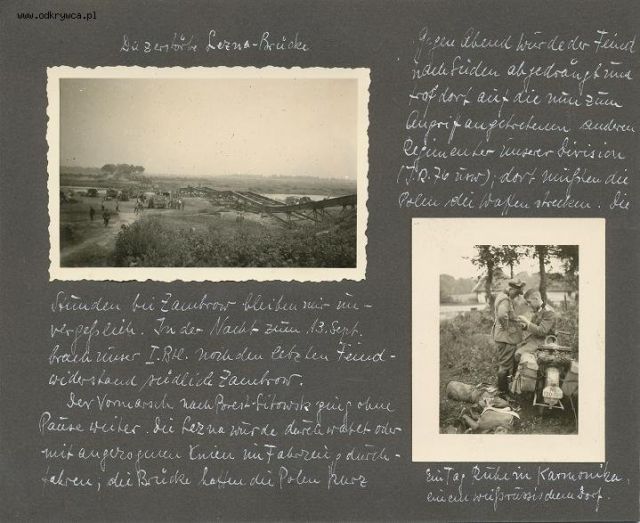 www.odkrywca.pl
Die zerstörte Lezna-Brücke
Gegen Abend wurde der Feind
nach Süden abgedrängt und
traf dort auf die nun zum
Angriff angetretenen anderen
Regimenter unserer Division
(J.R. 76 usw); dort mußten die
Polen die Waffen strecken. Die
Stunden bei Zambrow bleiben mir un-
vergeßlich. In der Nacht zum 13. Sept.
brach unser I. Btl. noch den letzten Feind-
widerstand südlich Zambrow.
Der Vormarsch nach Brest-Litowsk ging ohne
Pause weiter. Die Lezna wurde durchwatet oder
mit angezogenen Knien im Fahrzeug durch-
fahren; die Brücke hatten die Polen kurz
Ein Tag Ruhe in Karmonika,
einem weißrussischen Dorf.